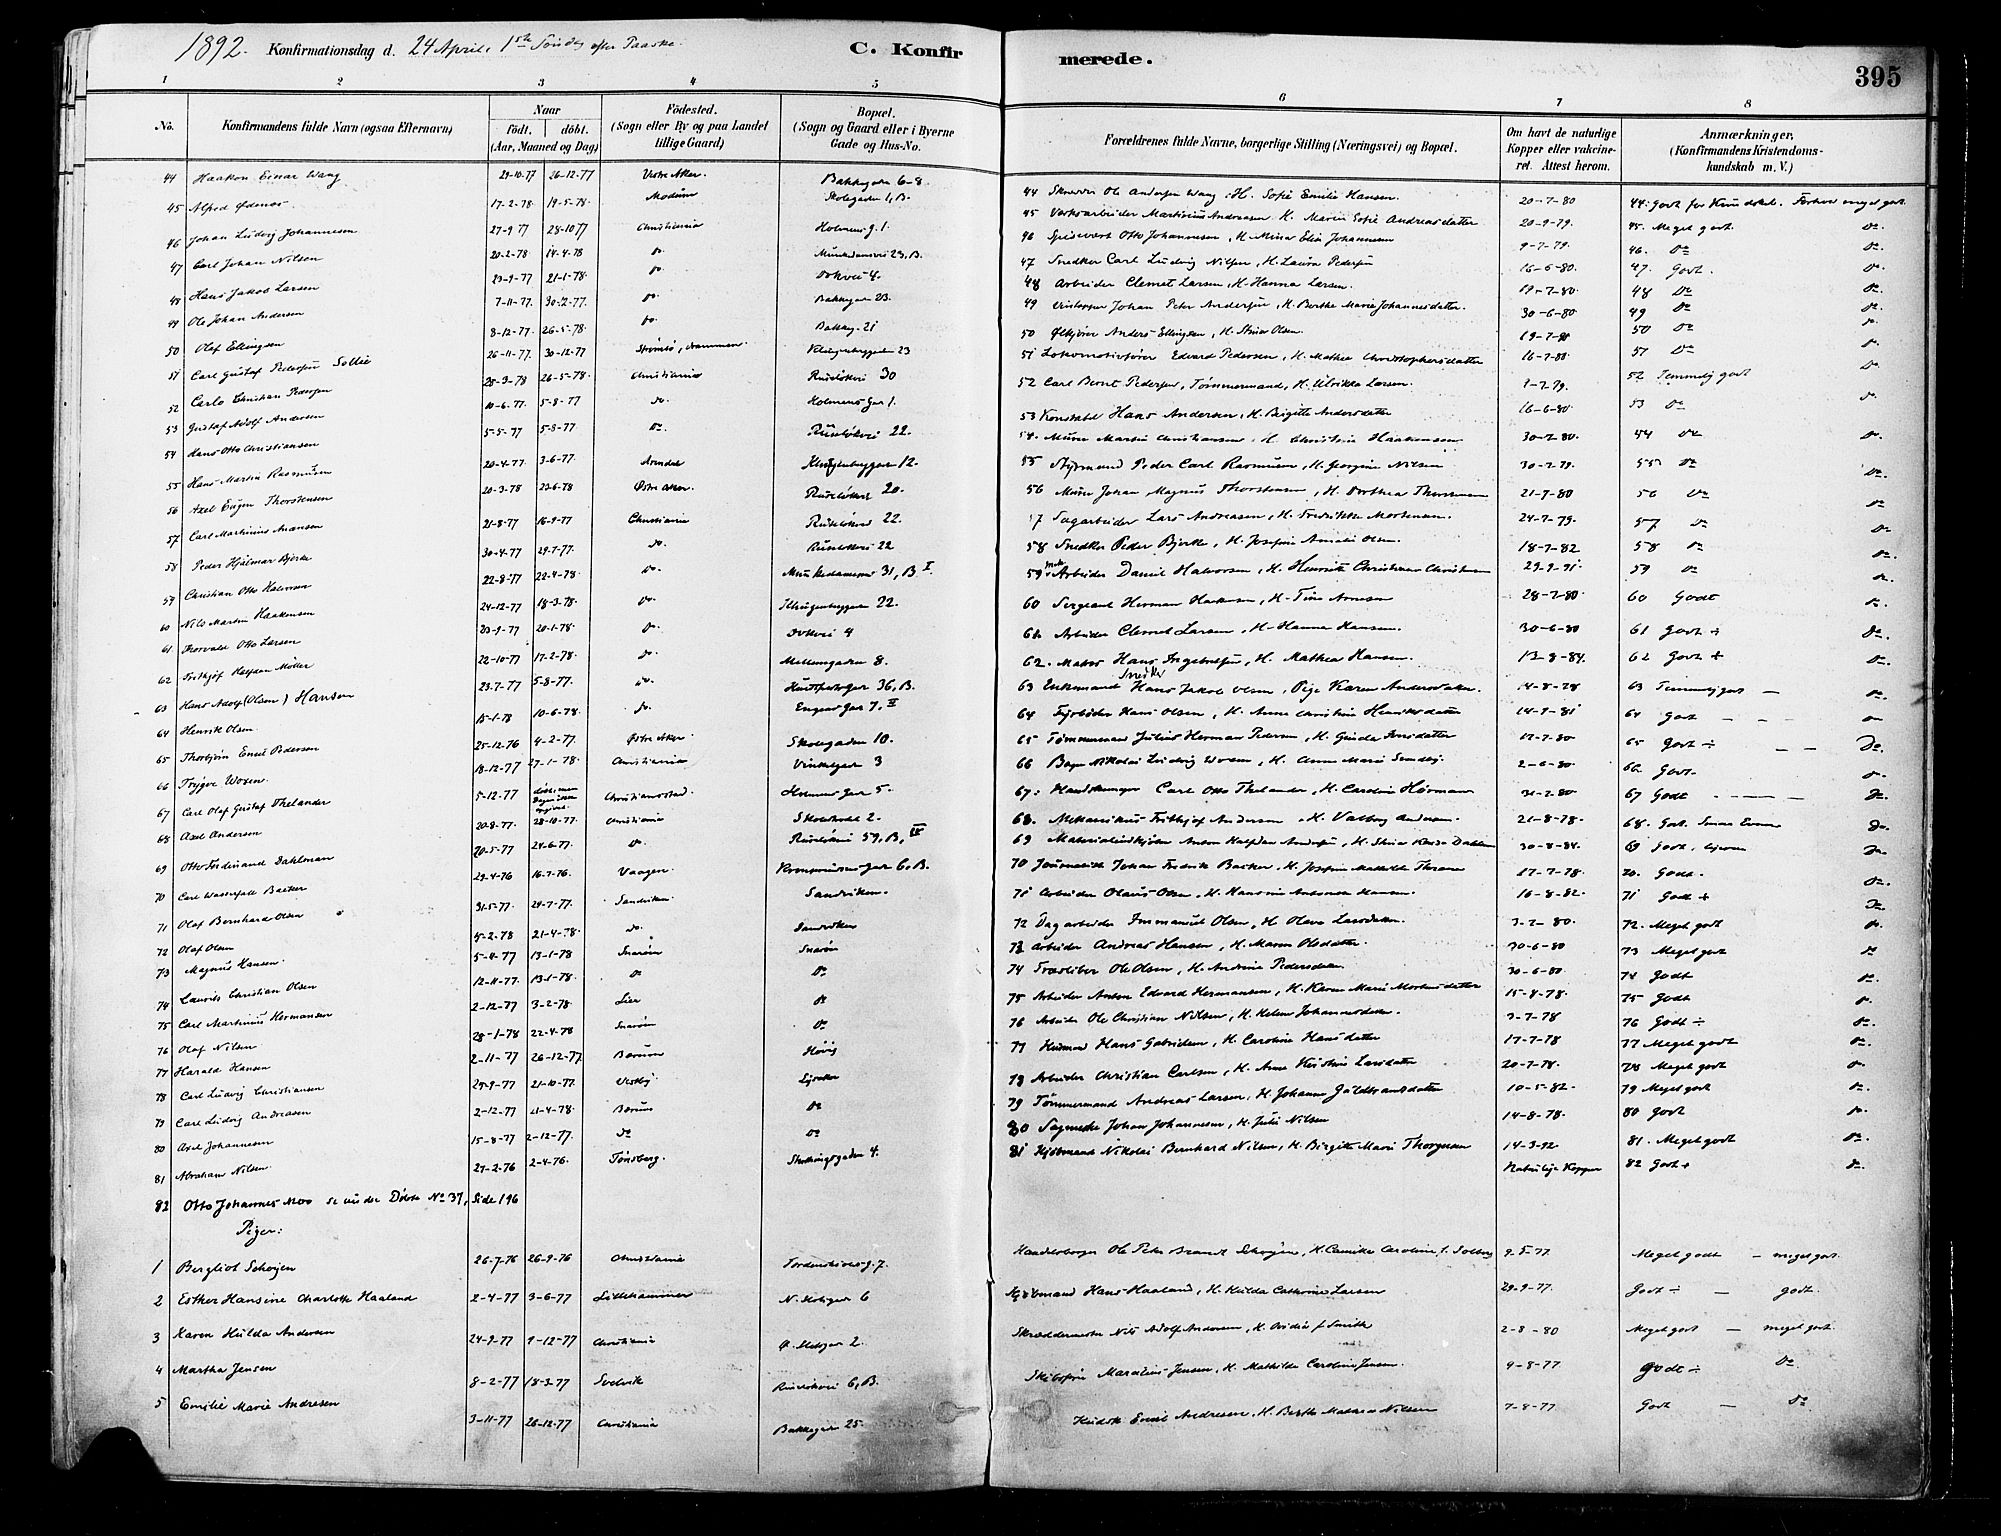 1892. Konfirmationsdag d. 24 April. 1ste Søndag efter Paaske. C. Konfirmerede. 395
1 2 3 4 5 6 7 8
No. Konfirmandens fulde Navn (ogsaa Efternavn) Naar født. døbt. (Aar, Maaned og Dag) Fødested. (Sogn eller By og paa Landet tillige Gaard) Bopæl. (Sogn og Gaard eller i Byerne Gade og Hus-No. Forældrenes fulde Navne, borgerlige Stilling (Næringsvei) og Bopæl. Om havt de naturlige Kopper eller vakcineret. Attest herom. Anmærkninger. (Konfirmandens Kristendomskundskab m. V.)
44 Haakon Einar Wang 29-10-77 26-12-77 Vestre Aker. Bakkegaden 6-8 44 Ole Andersen Wang, H. Sofie Emilie Hansen. 20-7-80 44. Godt
45 Alfred 17-2-78 19-5-78 Modum Skolegaden 1, B. 45 Martinius Andreasen H. Maren Sofie Andreasdatter 20-9-79. 45. Meget godt do
46 Johan Ludvig Johannesen 27-9-77 28-10-77 Christiania Holmens g. 1. 46 Spisevært Otto Johannesen, H. Mina Elise Johannesen 9-7-79. 46. do do
47 Carl Johan Nilsen 20-2-78 14-4-78 do. Munkedamsvei 23, B. 47 Snedker Carl Ludvig Nilsen, H. Laura Pedersen 16-6-80. 47. Godt. do
48 Hans Jakob Larsen 23-9-77 21-1-78 do Dokvei 4. 48 Arbeider Clemet Larsen, H. Hanna Larsen. 19-7-80. 48 do do
49 Ole Johan Andersen 7-11-77 30-12-77. do. Bakkegd 23. 49 Johan Peter Andersen, H. Berthe Marie Johannesdatter. 30-6-80 49 do do
50 Olaf Ellingsen 8-12-77 26-5-78. do. Bakkeg. 21 50 Anders Ellingsen, H. Stine Olsen. 19-7-80 50 do do
51 Carl Gustaf Pedersen Sollie 26-11-77. 30-12-77 Strømsø, Drammen. 23 51 Lokomotivfører Edvard Pedersen, H. Mathea Christophersdatter 16-7-80. 51 do do
52 Carlo Christian Pedersen 28-3-78 26-5-78. Christiania Rusløkvei 30 52 Carl Bernt Pedersen, Tømmermand, H. Ulrikke Larsen. 1-7-79. 52 Temmelig godt do
53 Gustaf Adolf Andersen 10-6-77. 5-8-77 do. Holmens Gd 1. 53 Konstabel Hans Andersen, H. Birgitte Andersdatter 16-6-80 53 do do
54 Hans Otto Christiansen 5-5-77 5-8-77 do. Rusløkvei 22. 54. Murer Martin Christiansen, H. Christine Haakensen 30-7-80. 54 do do
55 Hans Martin Rasmussen 20-4-77. 3-6-77. Arendal 12. 55 Styrmand Peder Carl Rasmussen, H. Georgine Nilsen 30-7-79. 55 do do
56 Axel Eugen Thorstensen 20-3-78 23-6-78 Østre Aker. Rusløkvei 20. 56 Murer Johan Magnus Thorstensen, H. Dorthea Thorstensen 21-7-80 56 do do
57 Carl Martinius Andresen 21-8-77 16-9-77 Christiania Rusløkvei 22. 57 Sagarbeider Lars Andreasen, H. Fredrikke Mortensen. 24-7-79. 57 do do
58 Peder Hjalmar Bjerke 30-4-77 29-7-77. do. Rusløkvei 22 58 Snedker Peder Bjerke, H. Josefine Amalie Olsen 18-7-82 58 do do
59 Christian Otto Halvorsen 22-8-77 22-4-78 do. Munkedamsvei 31, B I. 59 Arbeider Daniel Halvorsen, H. Henriette Christiane Christensen 29-9-91. 59 do do
60 Nils Martin Haakensen 24-12-77 18-3-78. do. 22. 60 Sergeant Herman Haakensen, H. Tine Arnesen 28-7-80. 60 Godt do
61 Thorvald Otto Larsen 23-9-77 20-1-78. do. Dokvei 4 61 Arbeider Clemet Larsen, H. Hanna Hansen. 30-6-80 61 Godt ÷ do.
62 Frithjof Halfdan Møller 22-10-77 17-2-78. do. Mellemgaden 8. 62. Hans Ingebretsen, H. Mathea Hansen. 13-8-84. 62 Godt + do.
63 Hans Adolf (Olsen) Hansen 23-7-77 5-8-77. do. Huitfeldtsgd 36, B. 63 Enkemand Snedker Hans Jakob Olsen, Pige Karen Andersdatter. 14-8-78 63 Temmelig godt — do.
64 Henrik Olsen. 15-1-78 10-6-78. do. 7, II 64 Fyrbøder Hans Olsen, H. Anne Christine Henriksdatter 14-9-81 64 Godt do
65 Thorbjørn Emil Pedersen 25-12-76 4-2-77. Østre Aker. Skolegaden 10. 65 Tømmermand Julius Herman Pedersen, H. Gunda Jensdatter 17-7-80 65 Godt ÷ do.
66 Trygve Woxen. 18-12-77 27-1-78. Christiania Vinkelgad 3 66 Nikolai Ludvig Woxen, H. Anna Marie Sundby. 2-6-80. 66 Godt. do
67 Carl Olaf Gustaf Thelander 5-12-77 Christiansstad. Holmens Gad 5. 67. Carl Otto Thelander, H. Caroline 31-7-80 67 Godt do.
68 Axel Andersen 20-8-77. 28-10-77. Christiania 2. 68. Mekanikus Frithjof Andersen, H. Valborg Andersen. 21-8-78. 68. Godt. do
69 Otto Ferdinand Dahlman 20-5-77 24-6-77. do. Rusløkvei 59, B, IV 69 Anton Halfdan Andersen, H. Stine 30-8-84. 69 Godt. do
70 Carl Wasserfall Backer 29-4-76 16-7-76. Vaagen. 6, B. 70 Journalist Johan Fredrik Backer, H. Josefine Mathilde 17-7-78. 70. Godt. do.
71 Olaf Bernhard Olsen 31-5-77. 29-7-77. Sandviken. Sandviken. 71 Arbeider Olaus Olsen, H. Hansine Antonette Hansen. 16-8-82. 71 Godt + do
72 Olaf Olsen 15-2-78 21-4-78. do. Sandviken 72 Dagarbeider Immanuel Olsen, H. Olava Larsdatter. 3-7-80. 72. Meget godt do.
73 Magnus Hansen. 5-4-77 13-1-78 Snarøen Snarøen 73 Arbeider Andreas Hansen, H. Maren Olsdatter. 30-6-80 73 Meget godt do
74 Laurits Christian Olsen 12-11-77. 13-1-78. do do 74 Ole Olsen, H. Andrine Pedersdatter. 30-6-80. 74 Godt do.
75 Carl Martinius Hermansen 2-12-77 3-2-78 Lier do 75 Arbeider Anton Edvard Hermansen, H. Karen Marie Mortensdatter 15-8-78. 75 Godt do.
76 Olaf Nilsen 28-1-78 22-4-78 Snarøen do 76 Arbeider Ole Christian Nilsen, H. Helene Johannesdatter. 3-7-78 76 Godt ÷ do.
77 Harald Hansen 2-11-77 26-12-77. Bærum Høvig 77 Husmand Hans Gabrielsen, H. Caroline Hansdatter 17-7-78 77 Meget godt do.
78 Carl Ludvig Christiansen 29-9-77 21-10-77. Vestby. Lysaker 78 Arbeider Christian Carlsen, H. Anne Kirstine Larsdatter 20-7-78. 78 Meget godt do
79 Carl Ludvig Andreasen 2-12-77 21-4-78. Bærum do 79 Tømmermand Andreas Larsen, H. Johanne Guldbrandsdatter 10-5-82. 79 Meget godt do.
80 Axel Johannesen 15-8-77 2-12-77. do do 80 Johan Johannesen, H. Julie Nilsen 14-8-78. 80 Godt do.
81 Abraham Nilsen. 27-2-76 2-4-76. Tønsberg. 4. 81 Kjøbmand Nikolai Bernhard Nilsen, H. Birgitte Marie Thorgersen 14-3-92 81. Meget godt do.
82 Otto Johannes Moo se under Døbte No 37, Side 196 Naturlige Kopper 82 Godt + do.
Piger:
1 Bergliot Schoyen 26-7-76 26-9-76 Christiania Tordenskiolds g. 7. Handelsborger Ole Peter Brandt Schøyen, H. Camilla Caroline f. Solberg 9-5-77 Meget godt — meget godt.
2 Esther Hansine Charlotte Haaland 2-4-77 3-6-77 Lillehammer 6 Kjøbmand Hans Haaland, H. Hilda Cathrine Larsen 29-9-77. Godt ÷ — godt.
3 Karen Hulda Andersen 24-9-77 9-12-77 Christiania 2. Skræddermester Nils Adolf Andersen, H. Ovidia f. Smith 2-8-80 Meget godt — meget godt.
4 Martha Jensen 8-2-77 18-3-77 Svelvik Rusløkvei 6, B. Jensen, H. Mathilde Caroline Jensen. 9-8-77 Godt ÷ do
5 Emilie Marie Andresen 3-11-77 26-12-77 Christiania Bakkegad 25. Emil Andresen, H. Berthe Mathea Nilsen 7-8-77 Godt — do